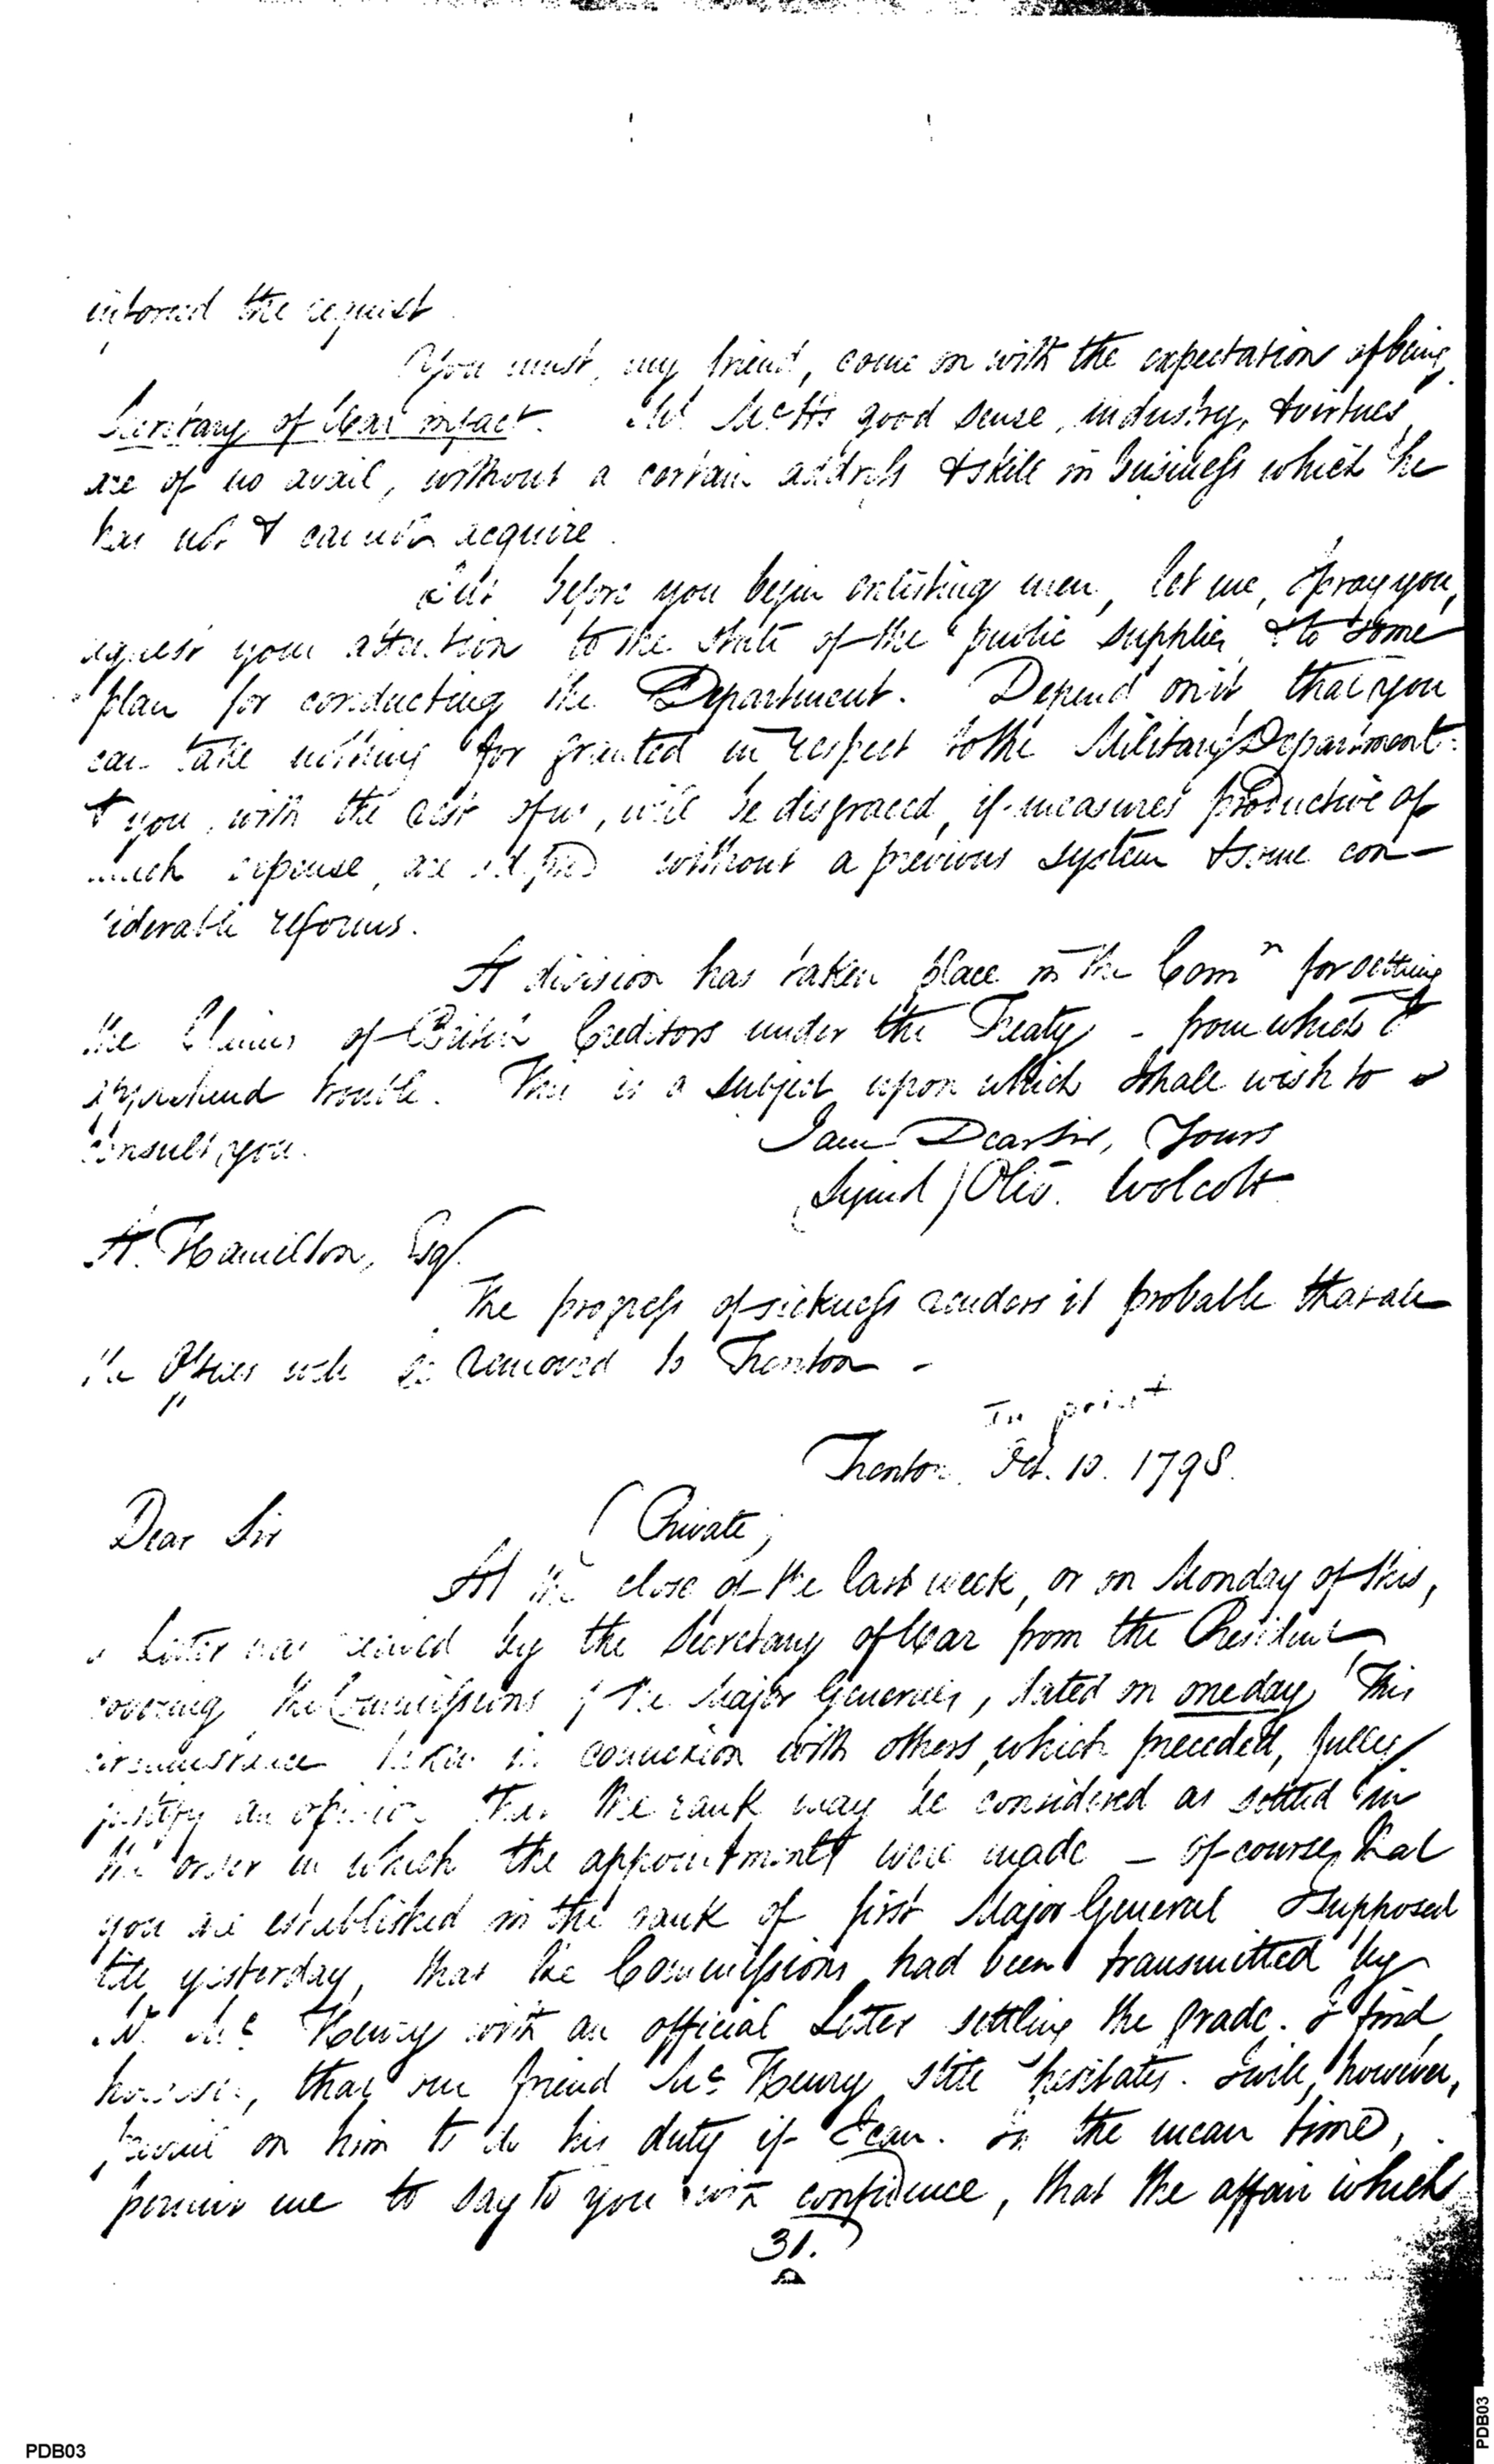 enforced the request.
You must, my friend, come on with the expectation of being
Secretary of War in fact. Mr. McH's good sense, industry, & virtues
are of no avail, without a certain address & skill in business which he
has not & cannot acquire.
But before you begin enlisting men, let me, I pray you,
request your attention to the state of the public supplies & to some
plan for conducting the Department. Depend on it, that you
can take nothing for granted in respect to the Military Department:
& you, with the rest of us, will be disgraced, if measures productive of
much expense, are adopted without a previous system & some con-
siderable reforms.
A division has taken place in the Comn for settling
the Claims of British Creditors under the Treaty - from which I
apprehend trouble. This is a subject upon which I shall wish to
consult you.
I am Dear Sir, Yours
Signed / Oliv. Wolcott
A. Hamilton, Esq
The progress of sickness renders it probable that all
the Offices will be removed to Trenton -
In print
Trenton. Oct. 10. 1798.
Dear Sir (Private)
At the close of the last week, or on Monday of this,
a Letter was received by the Secretary of War from the President
covering the Commissions of the Major Generals, dated on one day. This
circumstance taken in connexion with others, which preceded, fully
justify an opinion that the rank may be considered as settled in
the order in which the appointments were made - of course, that
you are established in the rank of first Major General. I supposed
till yesterday, that the Commissions had been transmitted by
Mr. Mc. Henry with an official Letter settling the grade. I find
however, that our friend Mc. Henry still hesitates. I will, however,
prevail on him to do his duty if I can. In the mean time,
permit me to say to you with confidence, that the affair which
31.
PDB03
PDB03